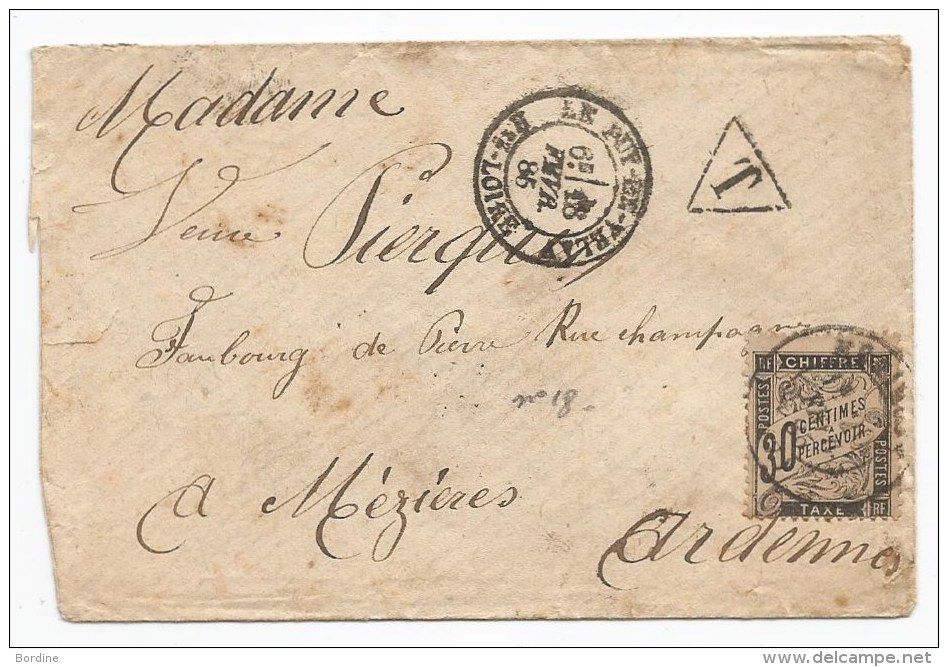 Madame
Veuve Pierquin
Faubourg de Pierre Rue champagne
à Mézières
Ardennes
LE PUY-EN-VELAY
HTE-LOIRE
6E 18
FEVR.
85
T
RF CHIFFRE RF
POSTES
30 CENTIMES
A
PERCEVOIR
POSTES
TAXE RF
Bordine
delcampe.net